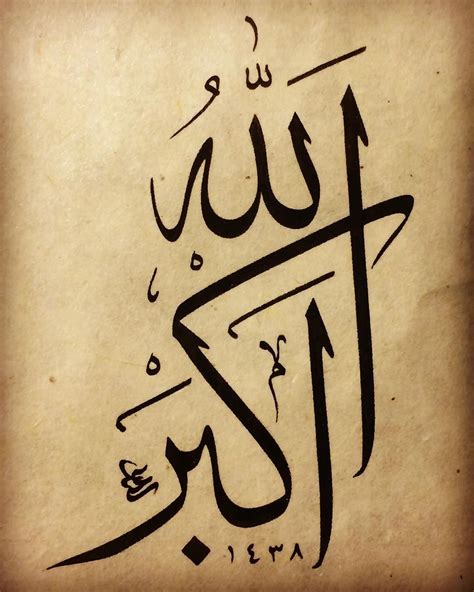 اللّٰهُ
أكبَر
١٤٣٨